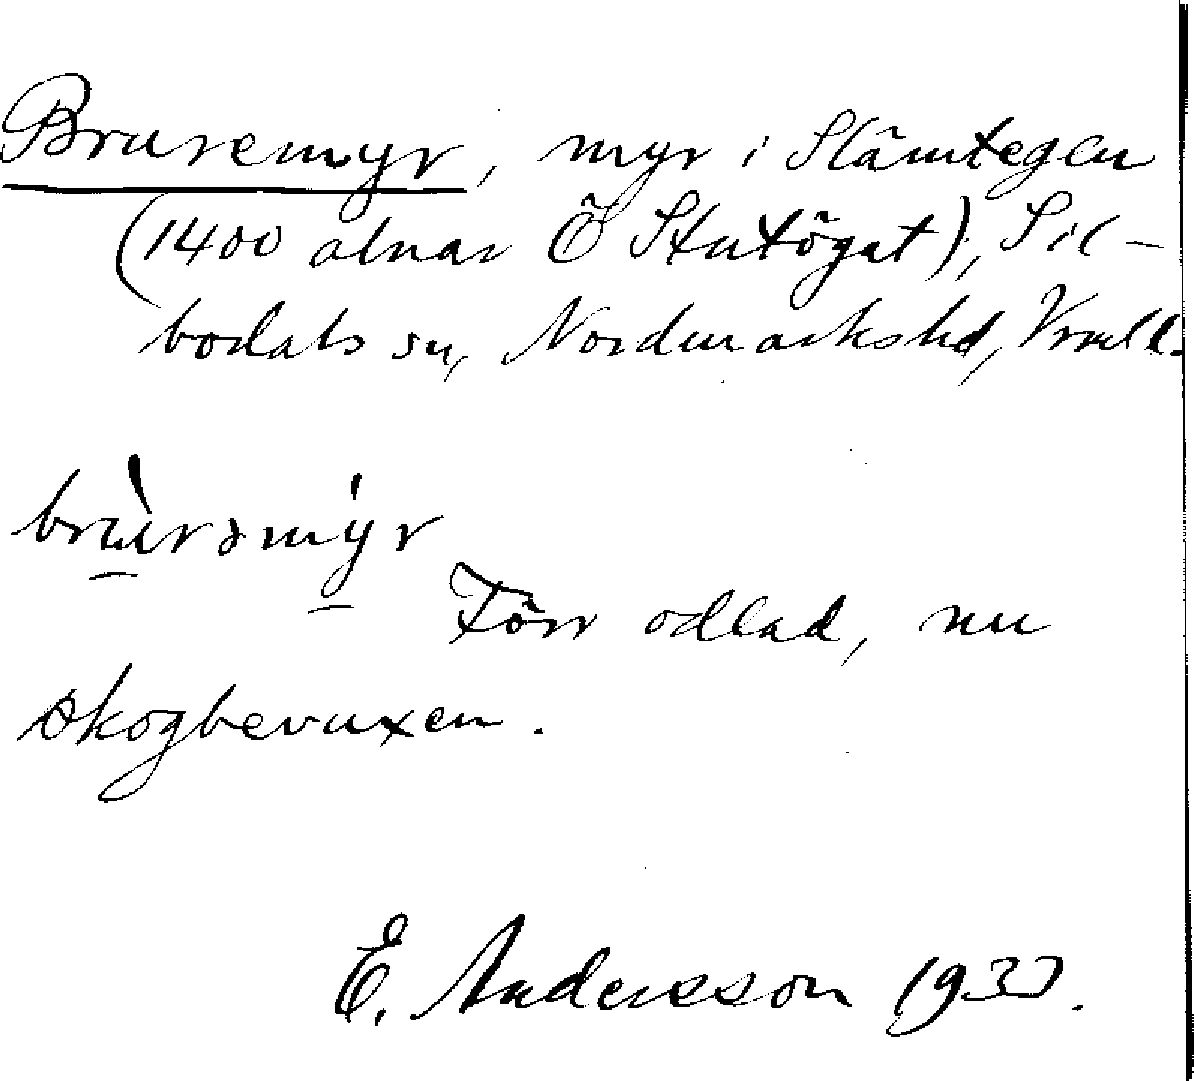 Bruremyr, myr i Slämtegen
(1400 alnar Ö Stutöget), Sil-
bodals sn, Nordmarkshd, Vrmld.
brùrəmy̍r
Förr odlad, nu
skogbevuxen.
E. Andersson 1933.